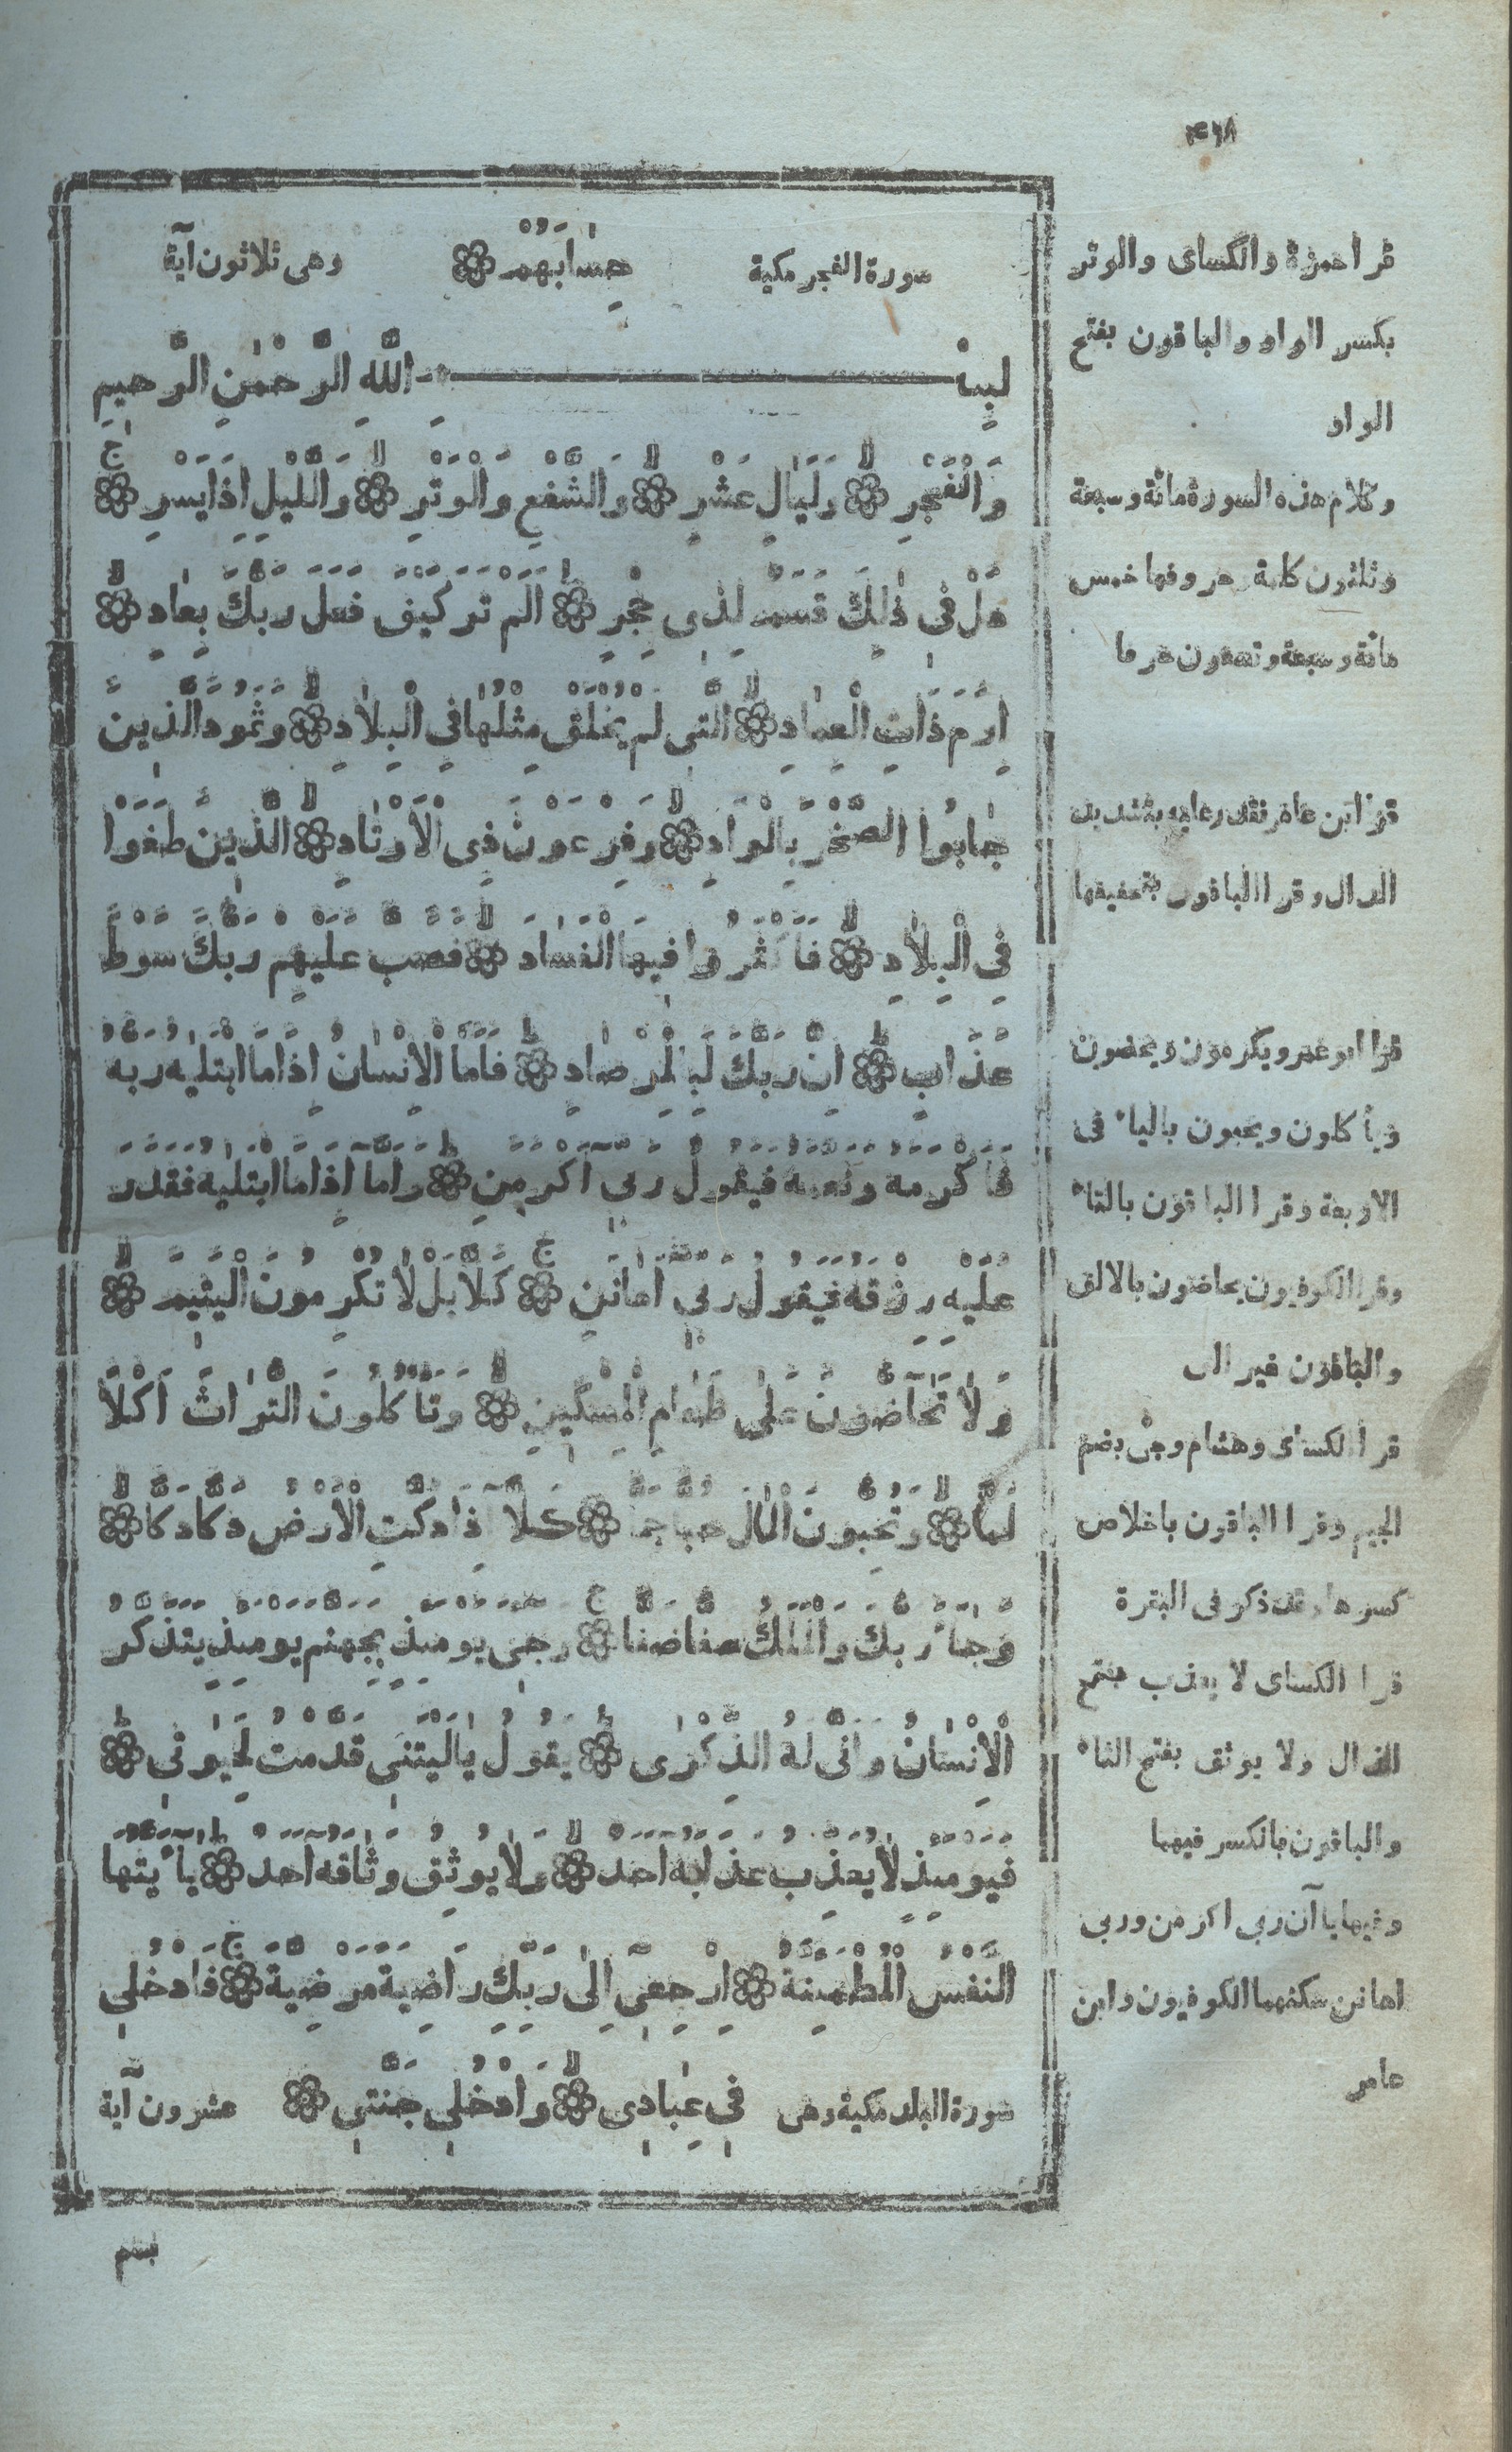 ٤٦٨
سورة الفجر مكية حِسٰابَهُمْ وهى ثلاثون آية
بِسْمِ اللّٰهِ الرَّحْمٰنِ الرَّحِيمِ
وَالْفَجْرِ ۙ وَلَيٰالٍ عَشْرٍ ۙ وَالشَّفْعِ وَالْوَتْرِ ۙ وَاللَّيْلِ اِذَا يَسْرِ ۚ
هَلْ فِى ذٰلِكَ قَسَمٌ لِذِى حِجْرٍ ۗ اَلَمْ تَرَ كَيْفَ فَعَلَ رَبُّكَ بِعٰادٍ ۙ
اِرَمَ ذَاتِ الْعِمٰادِ ۙ الَّتِى لَمْ يُخْلَقْ مِثْلُهٰا فِى الْبِلاٰدِ ۙ وَثَمُودَ الَّذِينَ
جٰابُوا الصَّخْرَ بِالْوَادِ ۙ وَفِرْعَوْنَ ذِى الْاَوْتٰادِ ۙ الَّذِينَ طَغَوْا
فِى الْبِلاٰدِ ۙ فَاَكْثَرُوا فِيهَا الْفَسٰادَ ۙ فَصَبَّ عَلَيْهِمْ رَبُّكَ سَوْطَ
عَذَابٍ ۗ اِنَّ رَبَّكَ لَبِالْمِرْصٰادِ ۗ فَاَمَّا الْاِنْسٰانُ اِذَا مَا ابْتَلٰيهُ رَبُّهُ
فَاَكْرَمَهُ وَنَعَّمَهُ فَيَقُولُ رَبِّى اَكْرَمَنِ ۗ وَاَمَّا اِذَا مَا ابْتَلٰيهُ فَقَدَرَ
عَلَيْهِ رِزْقَهُ فَيَقُولُ رَبِّى اَهٰانَنِ ۚ كَلاَّ بَلْ لاٰ تُكْرِمُونَ الْيَتِيمَ ۙ
وَلاٰ تَحٰآضُّونَ عَلٰى طَعٰامِ الْمِسْكِينِ ۙ وَتَأْكُلُونَ التُّرٰاثَ اَكْلاً
لَمًّا ۙ وَتُحِبُّونَ الْمٰالَ حُبًّا جَمًّا كَلاَّ اِذَا دُكَّتِ الْاَرْضُ دَكًّا دَكًّا ۙ
وَجٰاءَ رَبُّكَ وَالْمَلَكُ صَفًّا صَفًّا ۚ وَجِىءَ يَوْمَئِذٍ بِجَهَنَّمَ يَوْمَئِذٍ يَتَذَكَّرُ
الْاِنْسٰانُ وَاَنّٰى لَهُ الذِّكْرٰى ۗ يَقُولُ يٰا لَيْتَنِى قَدَّمْتُ لِحَيٰوتِى ۗ
فَيَوْمَئِذٍ لاٰ يُعَذِّبُ عَذٰابَهُ اَحَدٌ ۙ وَلاٰ يُوثِقُ وَثٰاقَهُ اَحَدٌ ۗ يٰا اَيَّتُهَا
النَّفْسُ الْمُطْمَئِنَّةُ اِرْجِعِى اِلٰى رَبِّكِ رَاضِيَةً مَرْضِيَّةً ۚ فَادْخُلِى
سورة البلد مكية وهى فِى عِبٰادِى ۙ وَادْخُلِى جَنَّتِى عشرون آية
بسم
قرا حمزة والكساى والوتر
بكسر الواو والباقون بفتح
الواو
وكلام هذه السورة مائة وسبعة
وثلثون كلمة وحروفها خمس
مائة وسبعة وتسعون حرفا
قرا ابن عامر فقدر عليه بتشديد
الدال وقرا الباقون بتخفيفها
قرا ابو عمرو يكرمون ويحضون
ويأكلون ويحبون بالياء فى
الاربعة وقرا الباقون بالتاء
وقرا الكوفيون تحاضون بالالف
والباقون غير الف
قرا الكساى وهشام وجئ بضم
الجيم وقرا الباقون باخلاص
كسرها وقد ذكر فى البقرة
قرا الكساى لا يعذب بفتح
الذال ولا يوثق بفتح الثاء
والباقون بالكسر فيهما
وفيها يا آن ربى اكرمن وربى
اهانن سكنهما الكوفيون وابن
عامر